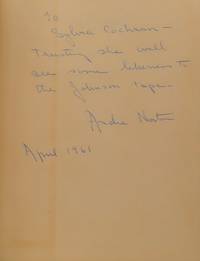 To
Sylvia Cochran –
Trusting she will
see some likeness to
the Johnson tape.
Andre Norton
April 1961